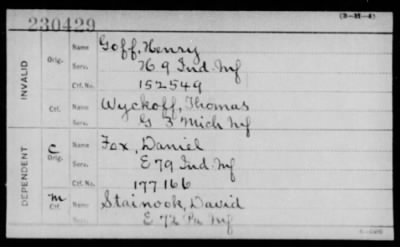 (3-H-4)
230429
INVALID
Orig.
Name Goff, Henry
Serv. H 9 Ind. Inf
Ctf. No. 152549
Ctf.
Name Wyckoff, Thomas
Serv. G 3 Mich Inf
DEPENDENT
C
Orig.
Name Fox, Daniel
Serv. E 79 Ind. Inf
Ctf. No. 177166
m
Ctf.
Name Stainook, David
Serv. E 72 Pa Inf